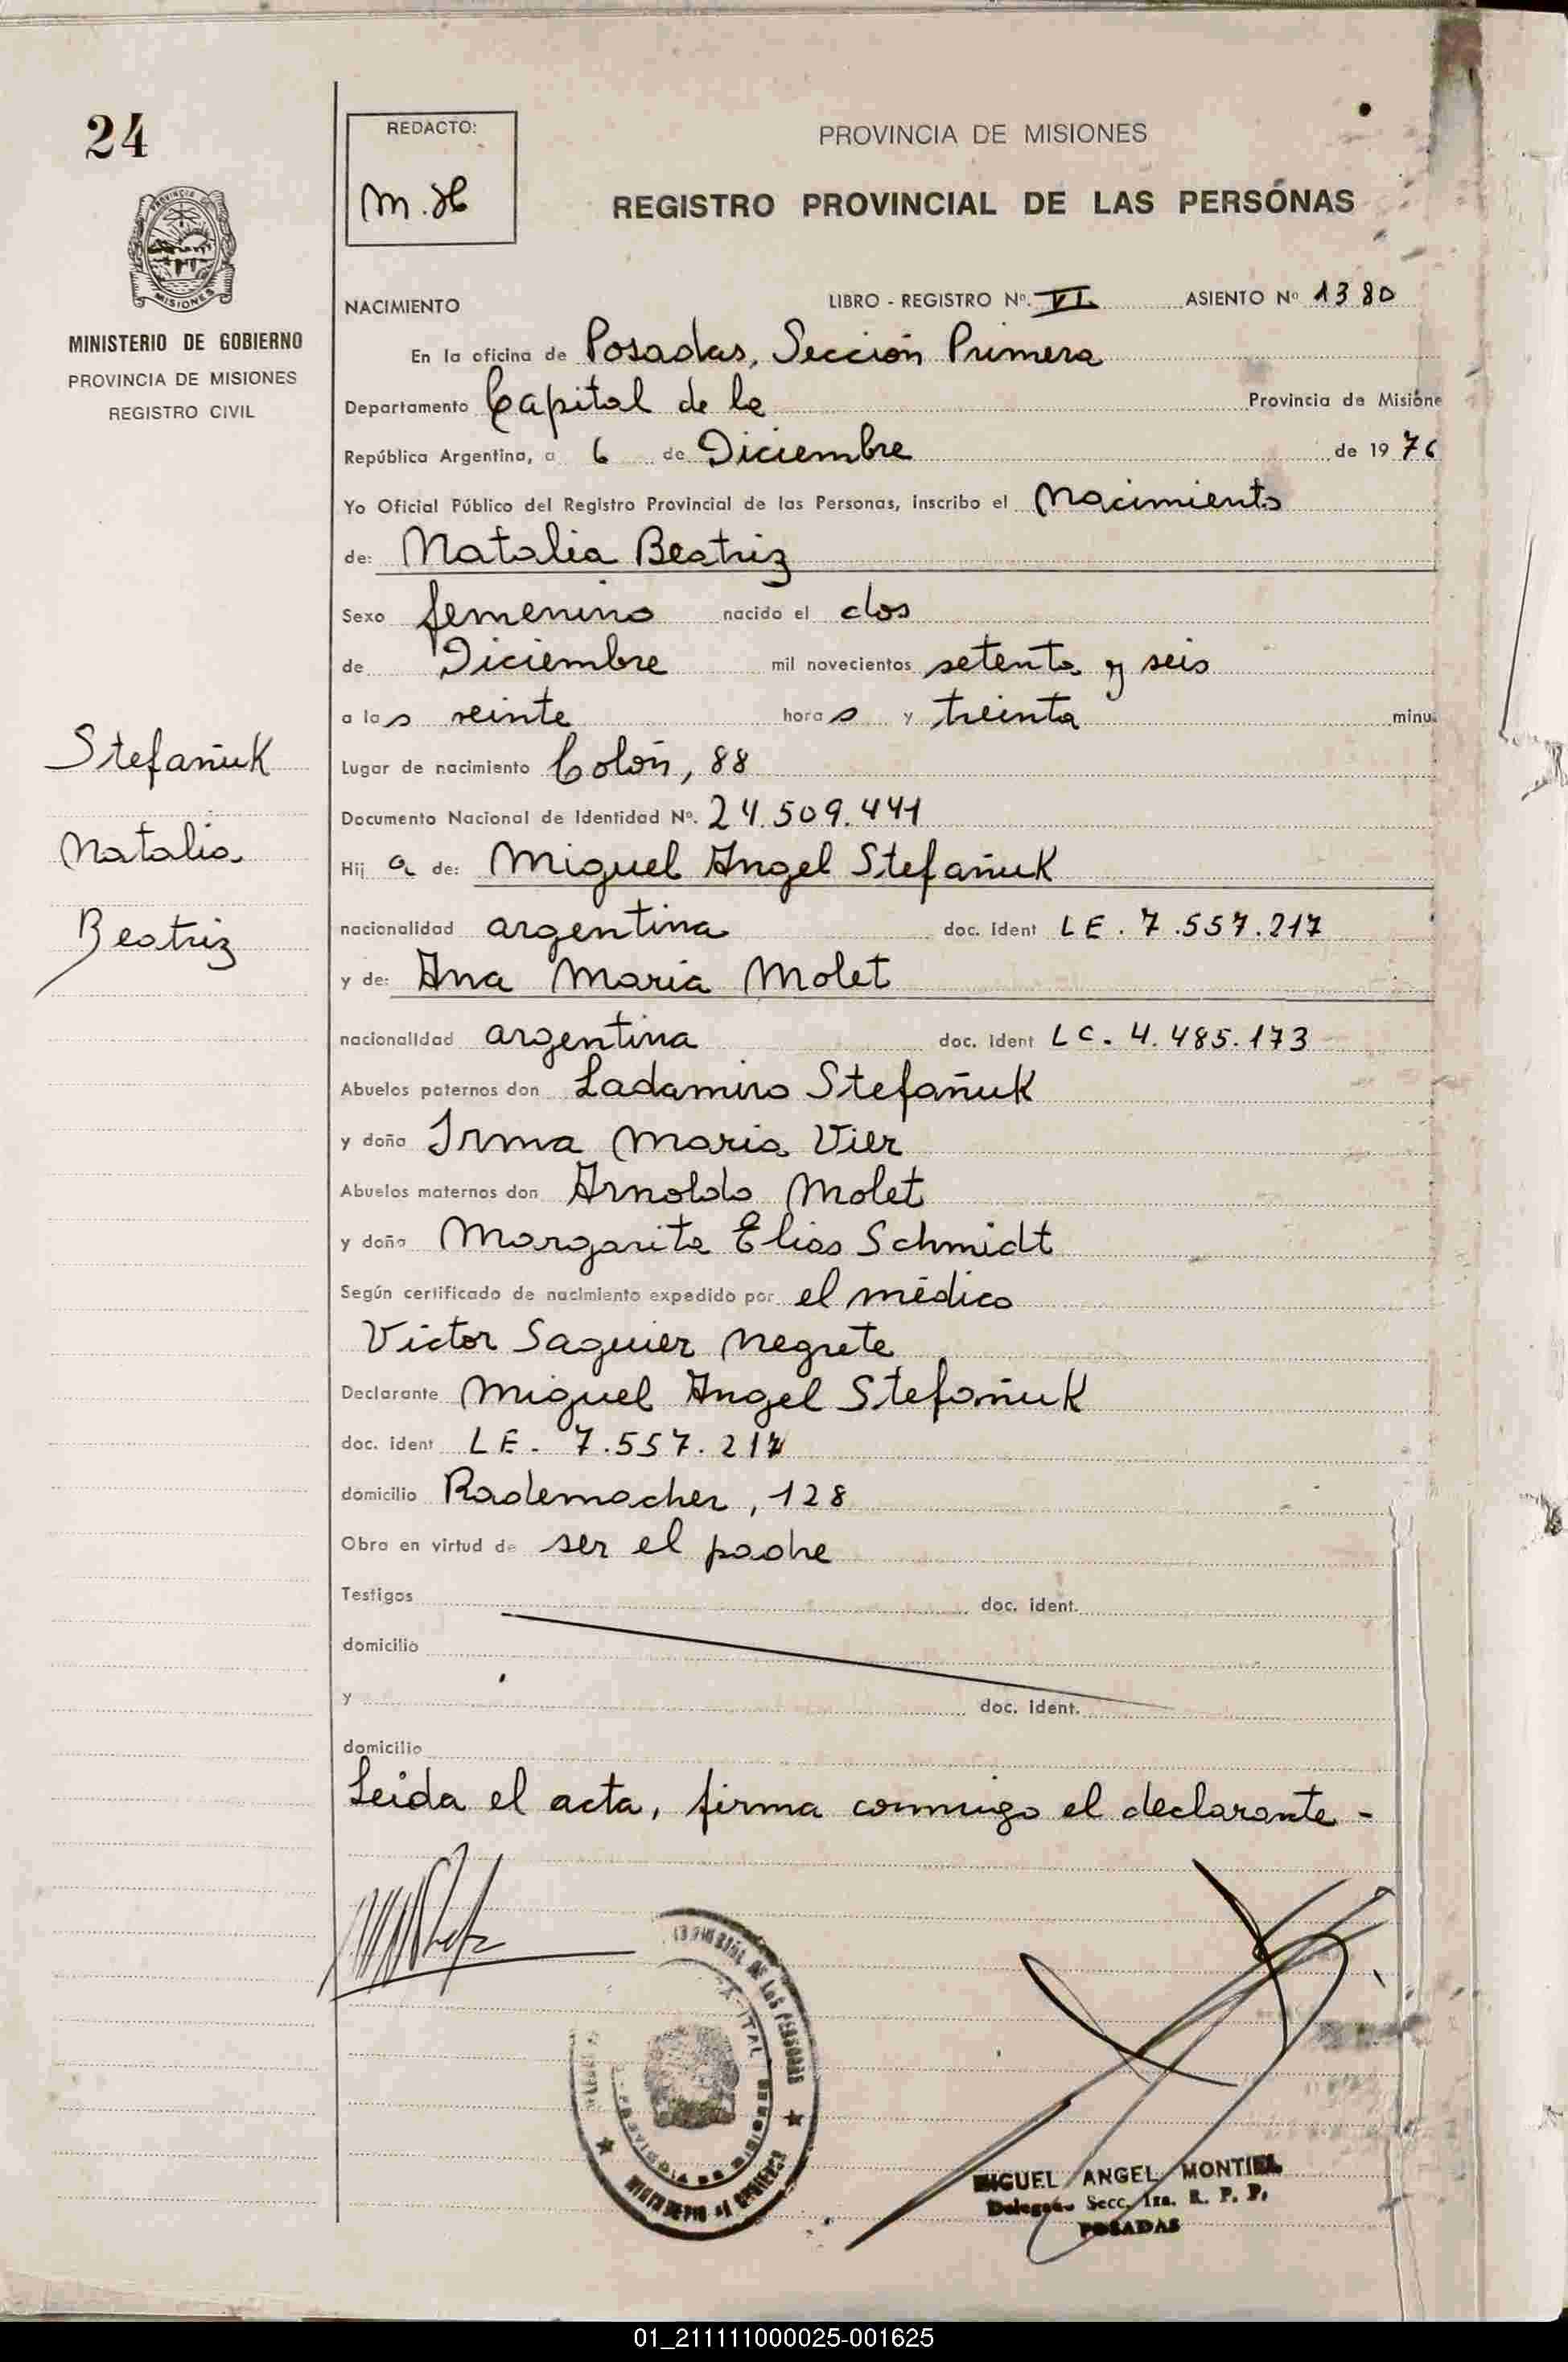 24
REDACTO:
M. H
PROVINCIA DE MISIONES
REGISTRO PROVINCIAL DE LAS PERSONAS
MISIONES
MINISTERIO DE GOBIERNO
PROVINCIA DE MISIONES
REGISTRO CIVIL
NACIMIENTO LIBRO - REGISTRO Nº. VI ASIENTO Nº 1380
En la oficina de Posadas, Sección Primera
Departamento Capital de la Provincia de Misione
República Argentina, a 6 de Diciembre de 1976
Yo Oficial Público del Registro Provincial de las Personas, inscribo el Nacimiento
de: Natalia Beatriz
Sexo femenino nacido el dos
de Diciembre mil novecientos setenta y seis
a las veinte horas y treinta minu
Stefañuk
Natalia
Beatriz
Lugar de nacimiento Colón, 88
Documento Nacional de Identidad Nº. 24.509.441
Hija de: Miguel Angel Stefañuk
nacionalidad argentina doc. ident LE. 7.557.217
y de: Ana Maria Molet
nacionalidad argentina doc. ident LC. 4.485.173
Abuelos paternos don Ladamiro Stefañuk
y doña Irma Maria Vier
Abuelos maternos don Arnoldo Molet
y doña Margarita Elias Schmidt
Según certificado de nacimiento expedido por el médico
Victor Saguier Negrete
Declarante Miguel Angel Stefañuk
doc. ident LE. 7.557.217
domicilio Rademacher, 128
Obra en virtud de ser el padre
Testigos doc. ident.
domicilio
y doc. ident.
domicilio
Leida el acta, firma conmigo el declarante -
DE LAS PERSONAS
MIGUEL ANGEL MONTIEL
Delegado Secc. 1ra. R. P. P.
POSADAS
01_211111000025-001625